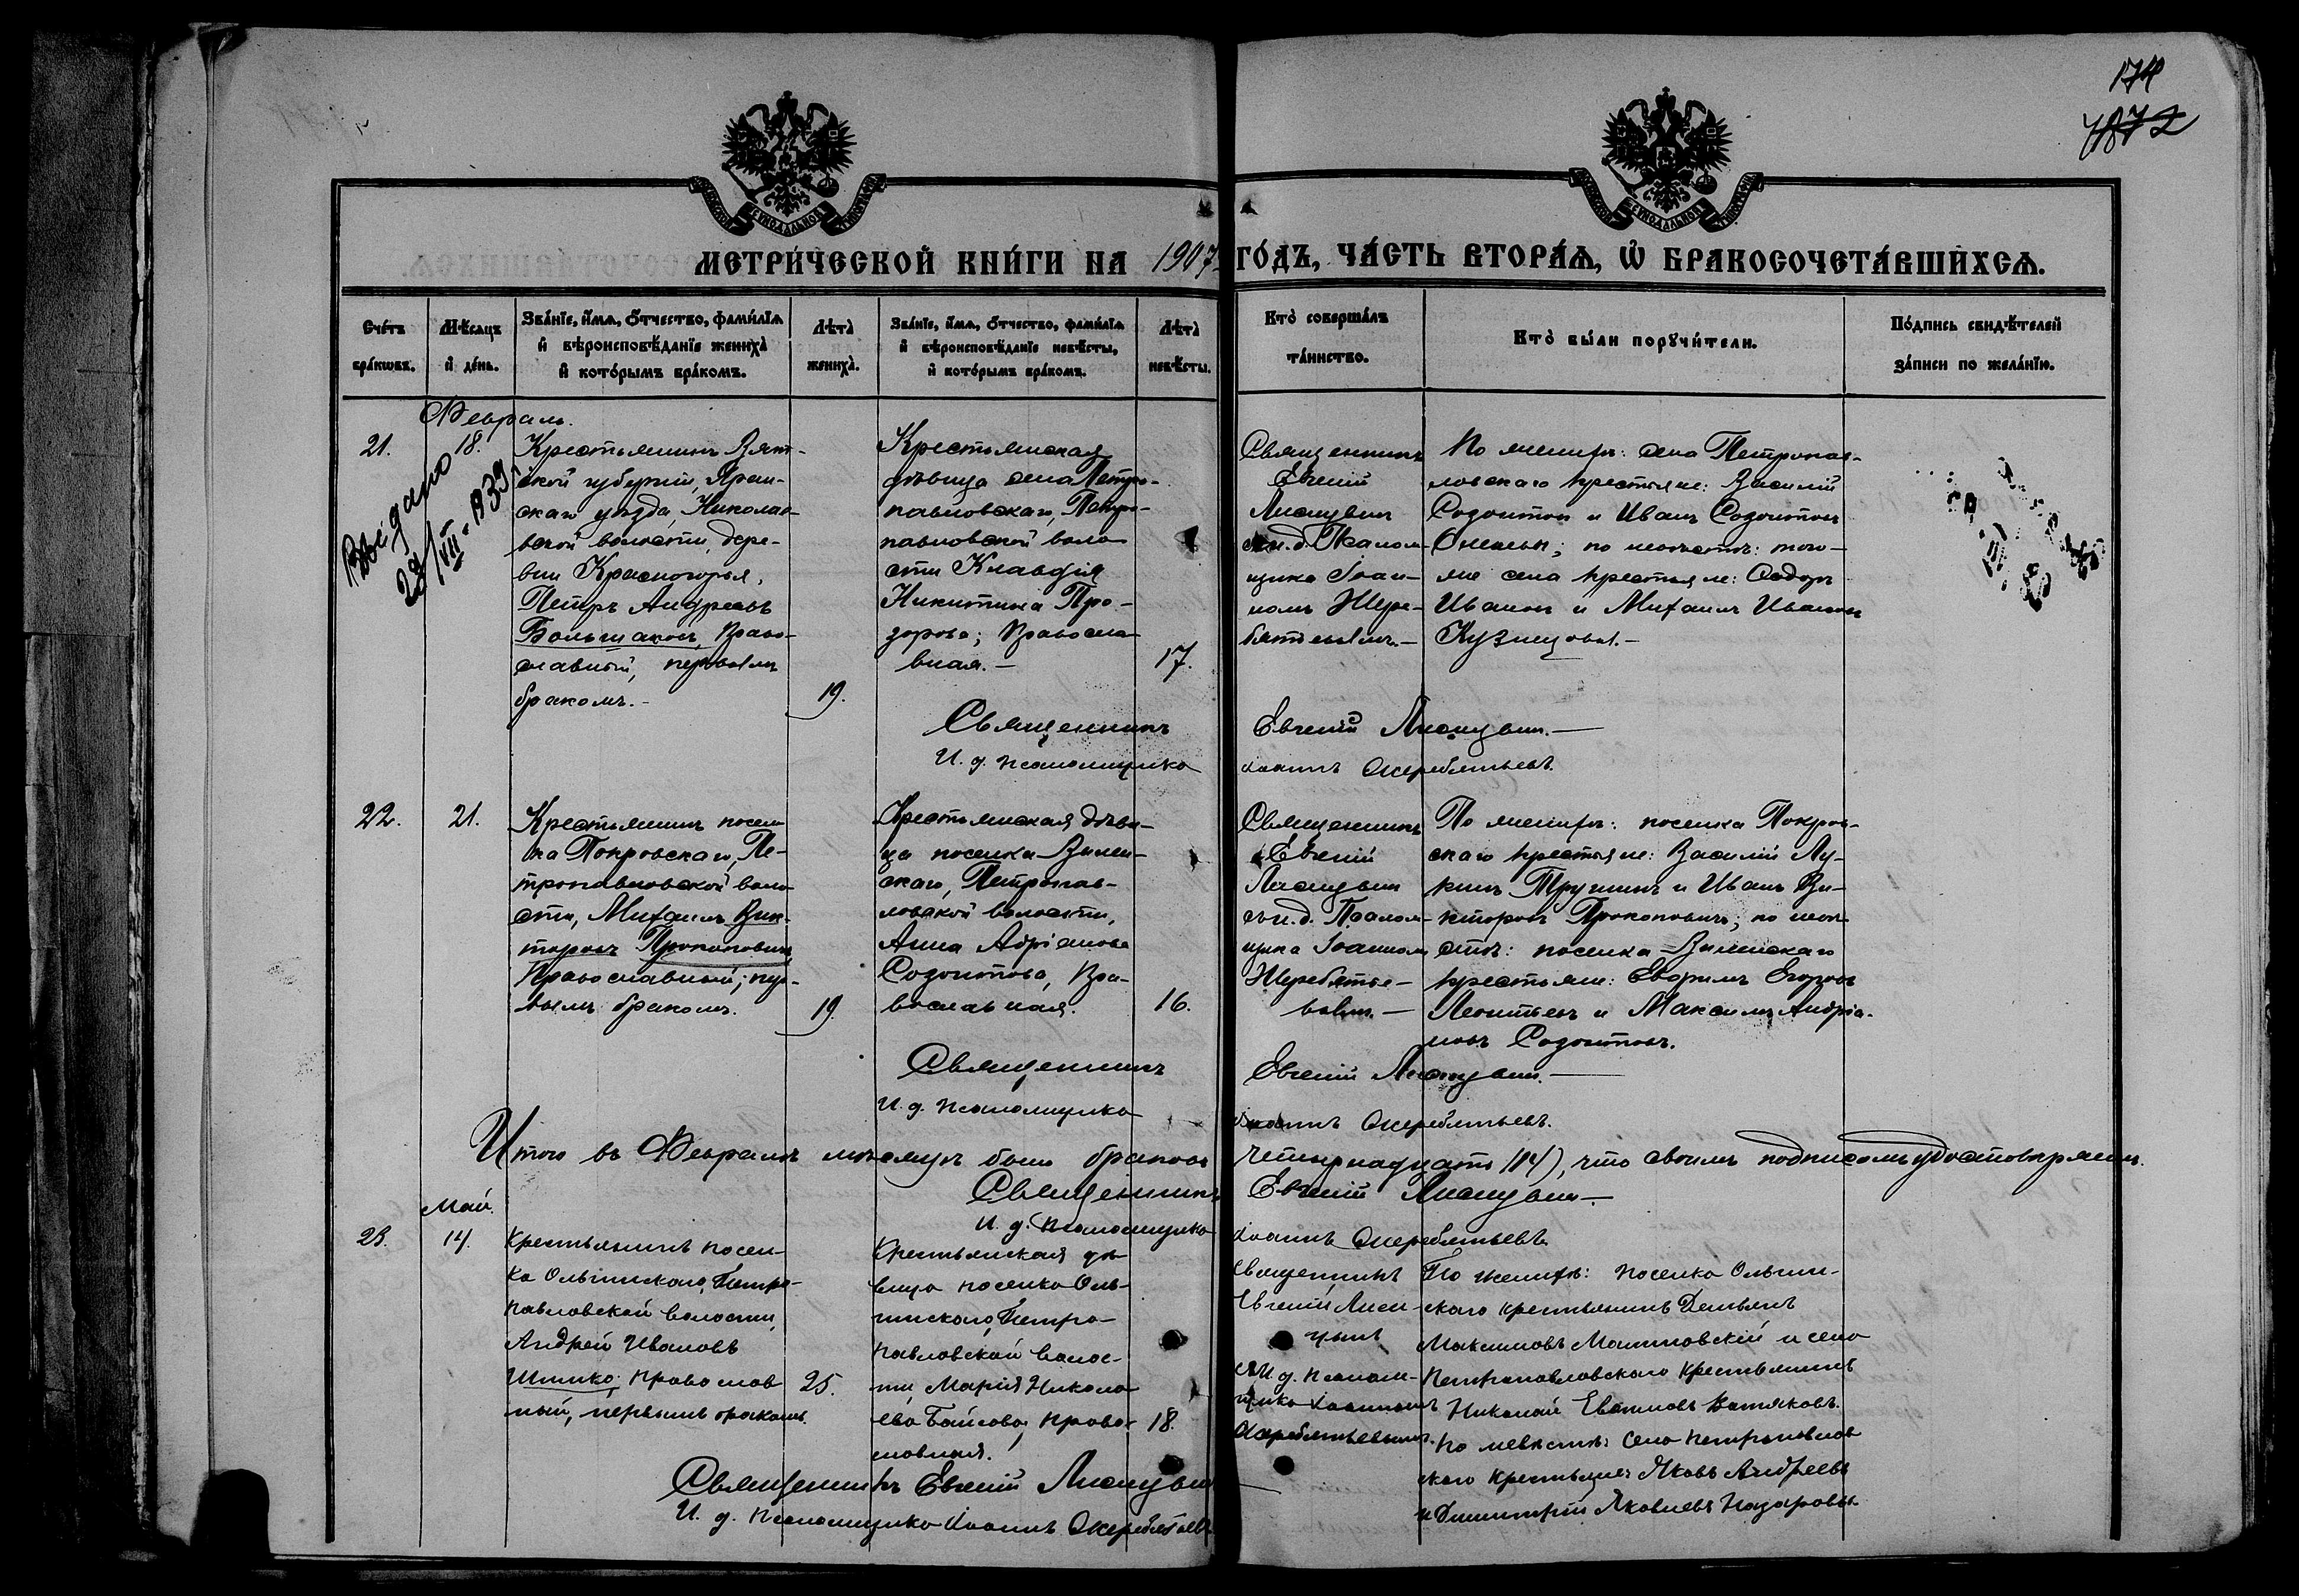 174
МЕТРИ́ЧЕСКОЙ КНИ́ГИ НА 1907 ГО́ДЪ, ЧА́СТЬ ВТОРА́Ѧ, Ѽ БРАКОСОЧЕТА́ВШИХСѦ.
Сче́тъ бра́кѡвъ.
Мѣ́сяцъ и҆ де́нь.
Зва́нїе, и҆́мѧ, ѻ҆́тчество, фами́лїѧ и҆ вѣроисповѣ́данїе жениха̀ и҆ кото́рымъ бра́комъ.
Лѣта̀ жениха̀.
Зва́нїе, и҆́мѧ, ѻ҆́тчество, фами́лїѧ и҆ вѣроисповѣ́данїе невѣ́сты, и҆ кото́рымъ бра́комъ.
Лѣта̀ невѣ́сты.
Кто̀ соверша́лъ та́инство.
Кто̀ бы́ли порꙋчи́тели.
По́дпись свидѣ́телей за́писи по жела́нїю.
Февраль.
21.
18.
Выдано
28/VII-1939
Крестьянинъ Вят-
ской губерніи, Яран-
скаго уѣзда, Николаев-
вской волости, дере-
вни Красногорья,
Петръ Андреевъ
Большаковъ, Право-
славный, первымъ
бракомъ.-
19.
Крестьянская
дѣвица села Петро-
павловскаго, Петро-
павловской воло-
сти Клавдія
Никитина Про-
зорова; Правосла-
вная.-
17.
Священникъ
Евгеній
Лисицынъ
съ и.д. Псалом-
щика Іоан-
номъ Жере-
бятьевымъ.-
По женихѣ: села Петропав-
ловскаго крестьяне: Василій
Созонтовъ и Иванъ Созонтовъ
; по невѣстѣ: того-
же села крестьяне: Ѳедоръ
Ивановъ и Михаилъ Ивановъ
Кузнецовы.-
Священникъ Евгеній Лисицынъ.-
И. д. псаломщика Іоаннъ Жеребятьевъ.
22.
21.
Крестьянинъ посел-
ка Покровскаго, Пе-
тропавловской воло-
сти, Михаилъ Вик-
торовъ Прокоповичъ
Православный; пер-
вымъ бракомъ.
19.
Крестьянская дѣви-
ца поселка Вилен-
скаго, Петропав-
ловской волости,
Анна Адріанова
Созонтова, Пра-
вославная.
16.
Священникъ
Евгеній
Лисицынъ
съ и.д. Псалом-
щика Іоанномъ
Жеребятье-
вымъ.-
По женихѣ: поселка Покров-
скаго крестьяне: Василій Лу-
кинъ Трушинъ и Иванъ Ви-
кторовъ Прокоповичъ; по невѣ-
стѣ: поселка Виленскаго
крестьяне: Ефремъ Егоровъ
Леонтьевъ и Максимъ Андріа-
новъ Созонтовъ.
Священникъ Евгеній Лисицынъ.-
И. д. псаломщика Іоаннъ Жеребятьевъ.
Итого въ Февралѣ мѣсяцѣ было браковъ четырнадцать (14), что своимъ подписомъ удостовѣряемъ.
Священникъ Евгеній Лисицынъ.-
И. д. псаломщика Іоаннъ Жеребятьевъ.
Май.
23.
14.
Крестьянинъ посел-
ка Ольгинскаго, Петро-
павловской волости,
Андрей Ивановъ
Шпико; православ-
ный, первымъ бракомъ.
25.
Крестьянская дѣ-
вица поселка Оль-
гинскаго, Петро-
павловской волос-
ти Марія Никола-
ева Баисова, право-
славная.
18.
Священникъ
Евгеній Лиси-
цынъ
съ И. д. псалом-
щика Іоанномъ
Жеребятьевымъ.
По женихѣ: поселка Ольгин-
скаго крестьянинъ Демьянъ
Максимовъ Малиновскій и села
Петропавловскаго крестьянинъ
Николай Евстиновъ Вотяковъ.
По невѣстѣ: села Петропавлов-
скаго крестьяне: Яковъ Андреевъ
и Димитрій Яковлевъ Назаровы.
Священникъ Евгеній Лисицынъ
И. д. псаломщика Іоаннъ Жеребятьевъ.